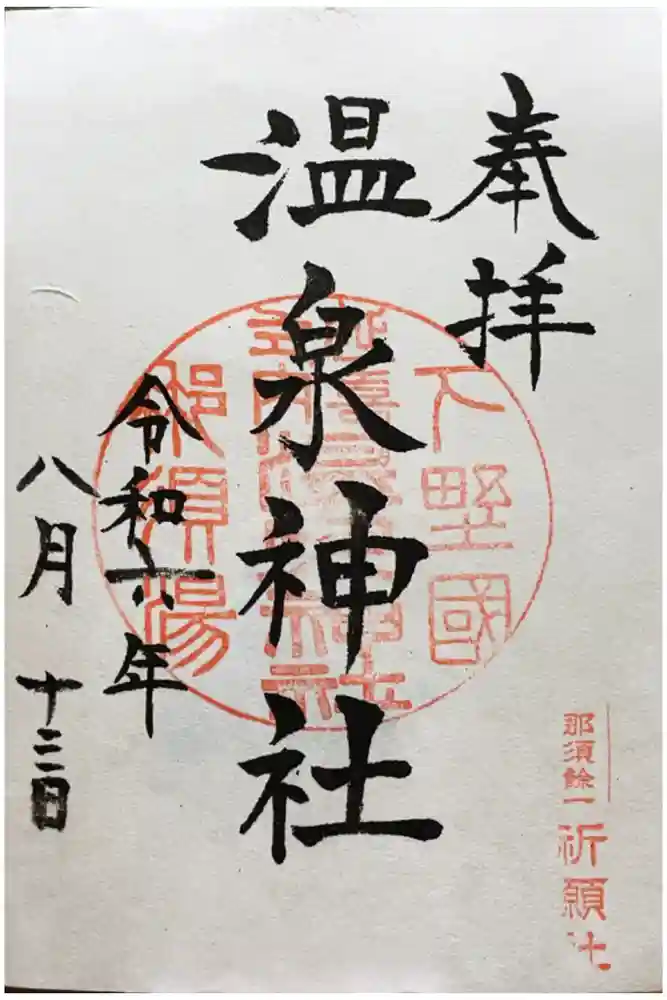 奉拝
温泉神社
令和六年
八月十二日
下野國
那須湯
那須餘一
祈願社